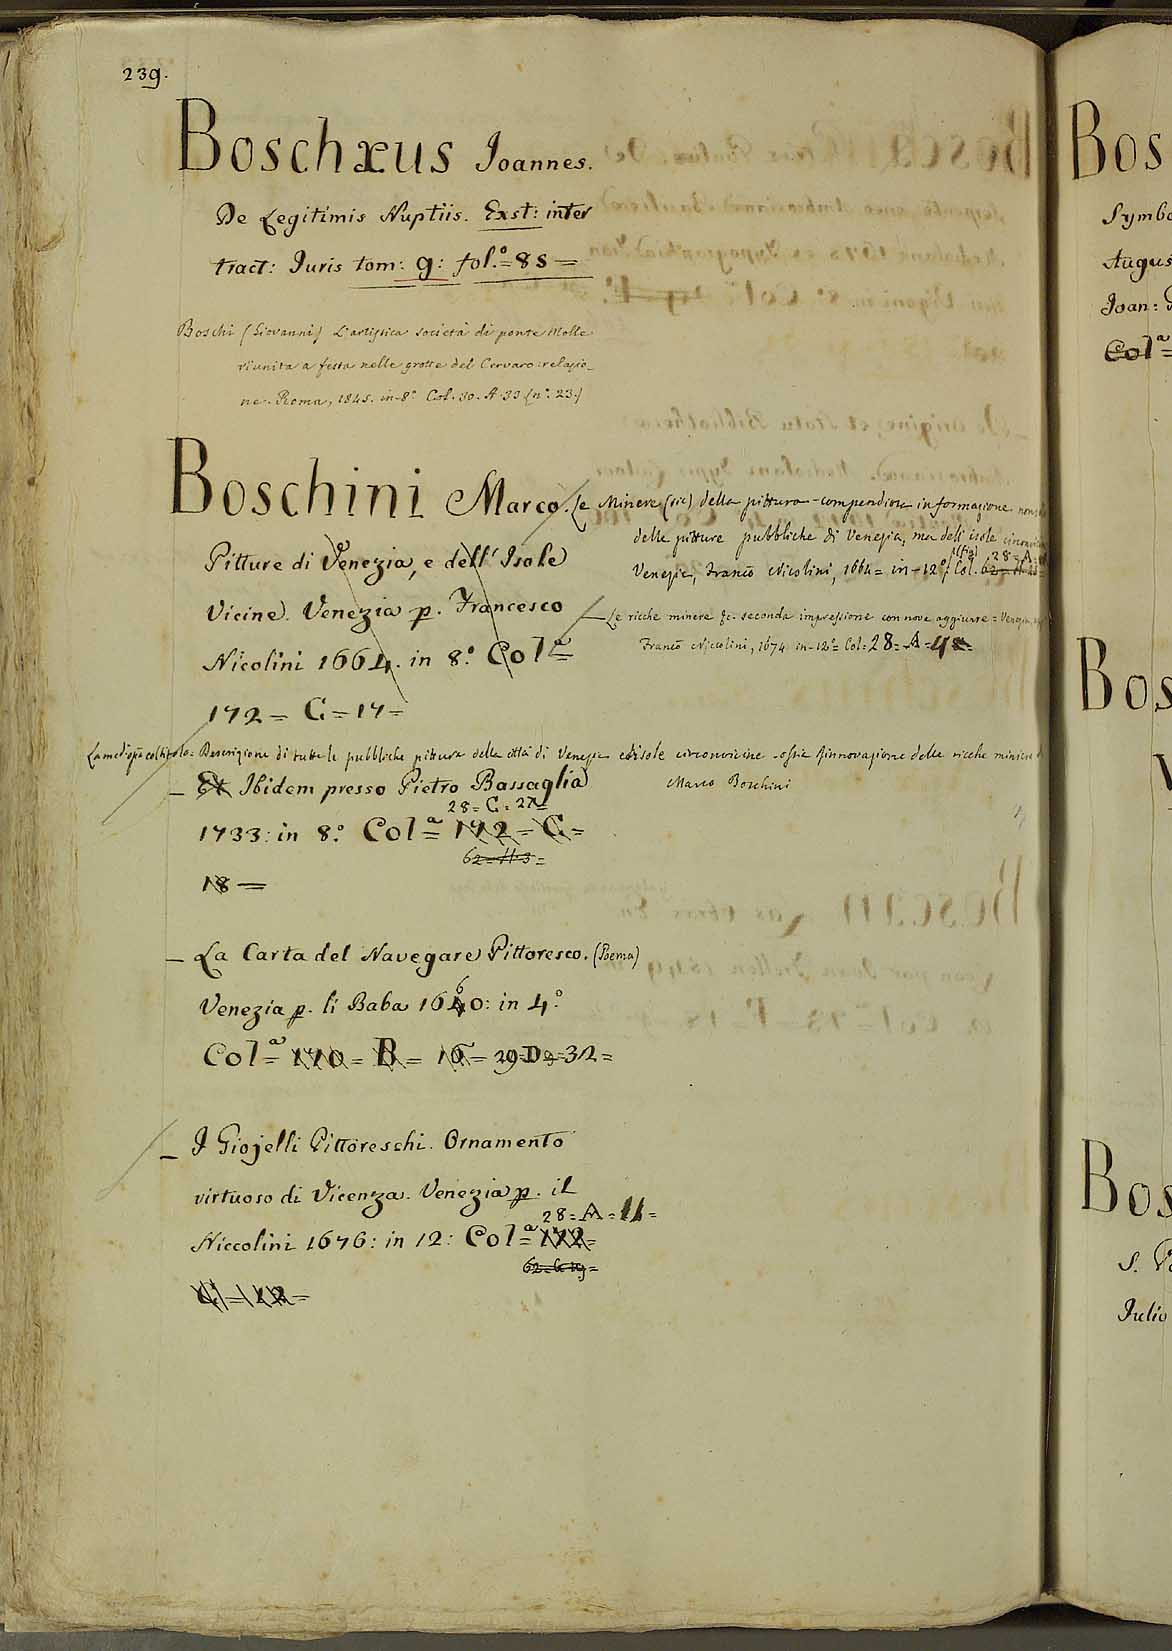 239.
Boschæus Joannes.
De Legitimis Nuptiis. Exst: inter
tract: Juris tom: 9: fol.º = 85 =
Boschi (Giovanni) L'artistica società di ponte Molle
riunita a festa nelle grotte del Cervaro: relazio_
ne. Roma, 1845. in-8º Col. 30. A. 33 (nº. 23.)
Boschini Marco. Le Minere (sic) della pittura - compendiosa informazione non
delle pitture pubbliche di Venezia, ma dell' isole
Venezia, Franco Nicolini, 1664 = in-12º: Col. 28 = A
Pitture di Venezia, e dell' Isole
Vicine. Venezia p. Francesco
Nicolini 1664. in 8.º Colª =
172 = C = 17 =
Le ricche minere &c. seconda impressione con nove aggiunte = Venezia,
Franco Niccolini, 1674 in-12º Col = 28 = A = 48 =
La med: opa col titolo = Descrizione di tutte le pubbliche pitture della città di Venezia ed isole circonvicine ossia Rinnovazione delle ricche miniere
Marco Boschini
_ Et Ibidem presso Pietro Bassaglia
28 = C = 27 =
1733: in 8.º Colª = 172 = C =
62 = H 3 =
18 =
_ La Carta del Navegare Pittoresco. (Poema)
Venezia p. li Baba 1660: in 4.º
Colª = 170 = B = 16 = 29 = D = 32 =
_ I Giojelli Pittoreschi. Ornamento
virtuoso di Vicenza. Venezia p. il
28 = A = 11 =
Niccolini 1676: in 12: Colª = 172 =
Bos
Symbo
Augus
Joan:
Colª =
Bos
V
Bos
S. P
Julio